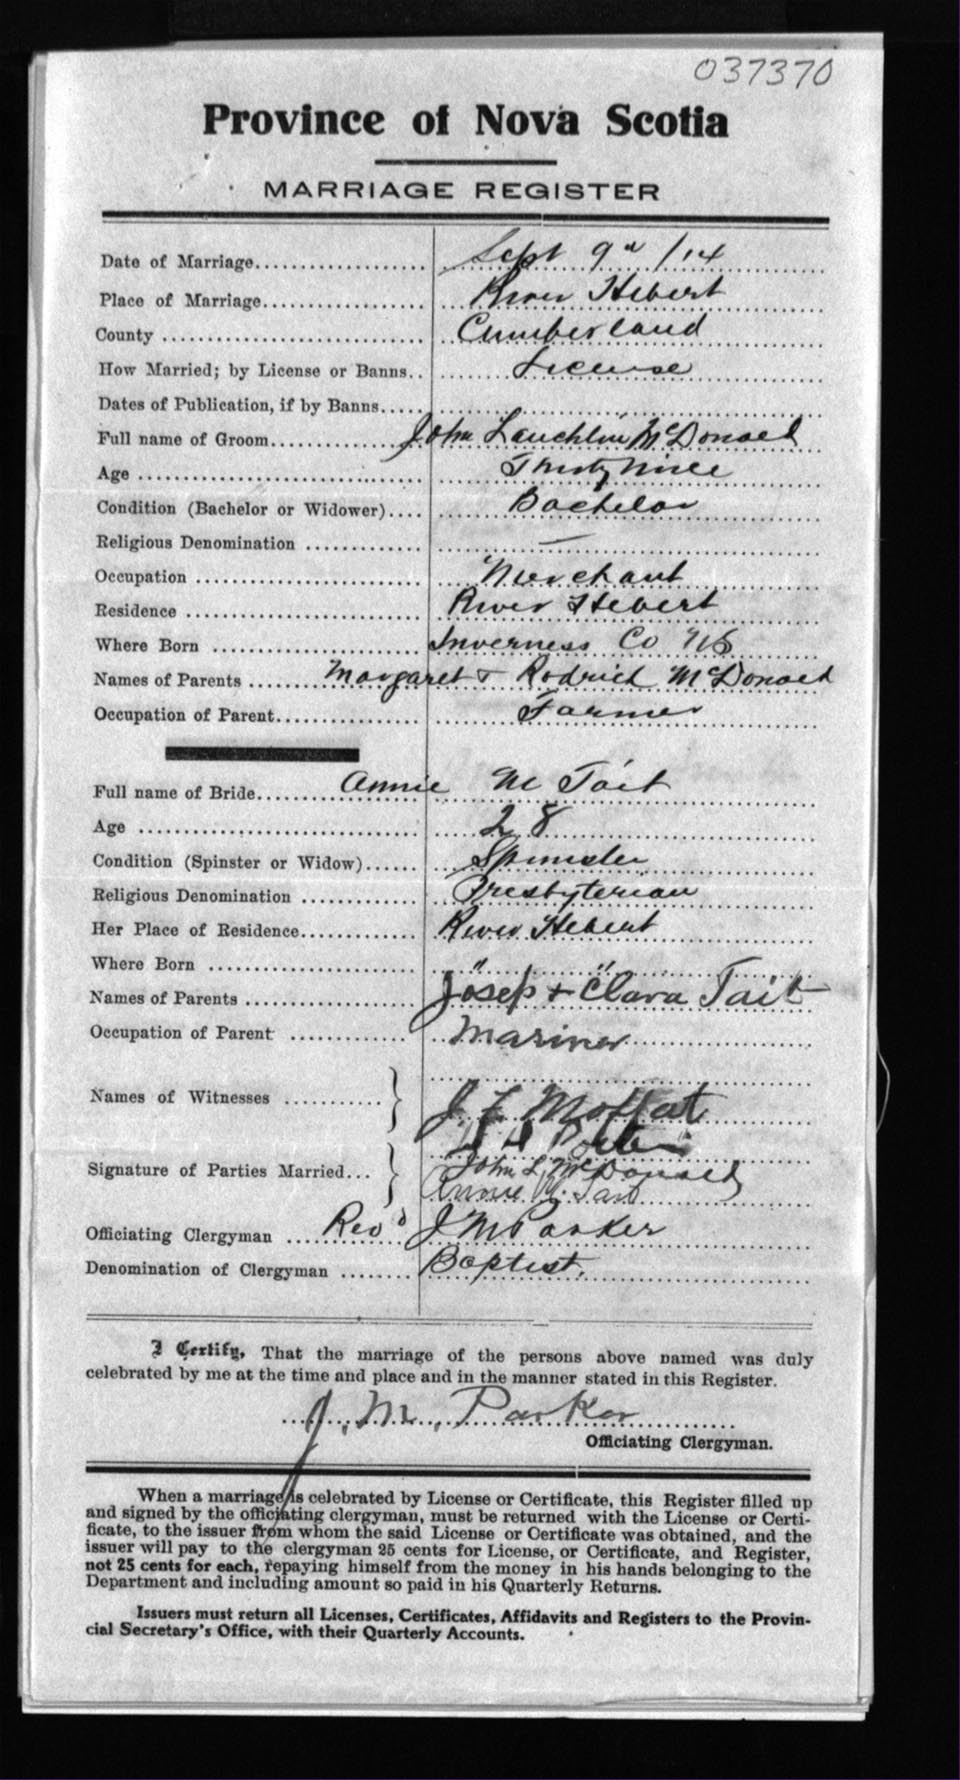 037370
Province of Nova Scotia
MARRIAGE REGISTER
Date of Marriage.................... Sept 9th /14
Place of Marriage................... River Hebert
County .............................. Cumberland
How Married; by License or Banns.. License
Dates of Publication, if by Banns.....
Full name of Groom................ John Lauchlin McDonald
Age ................................. Thirty Nine
Condition (Bachelor or Widower).... Bachelor
Religious Denomination .............. —
Occupation .......................... Merchant
Residence ........................... River Hebert
Where Born ........................ Inverness Co NS
Names of Parents ....... Margaret + Rodrich McDonald
Occupation of Parent................ Farmer
Full name of Bride........ Annie M Tait
Age ................................. 28
Condition (Spinster or Widow)...... Spinster
Religious Denomination ............. Presbyterian
Her Place of Residence............. River Hebert
Where Born ........................ " "
Names of Parents .................. Josep + Clara Tait
Occupation of Parent .............. Mariner
Names of Witnesses ........... } J F Moffat
Signature of Parties Married... } John L McDonald
Annie M. Tait
Officiating Clergyman .... Rev'd J M Parker
Denomination of Clergyman ........ Baptist.
I Certify, That the marriage of the persons above named was duly
celebrated by me at the time and place and in the manner stated in this Register.
J. M. Parker
Officiating Clergyman.
When a marriage is celebrated by License or Certificate, this Register filled up
and signed by the officiating clergyman, must be returned with the License or Certi-
ficate, to the issuer from whom the said License or Certificate was obtained, and the
issuer will pay to the clergyman 25 cents for License, or Certificate, and Register,
not 25 cents for each, repaying himself from the money in his hands belonging to the
Department and including amount so paid in his Quarterly Returns.
Issuers must return all Licenses, Certificates, Affidavits and Registers to the Provin-
cial Secretary's Office, with their Quarterly Accounts.